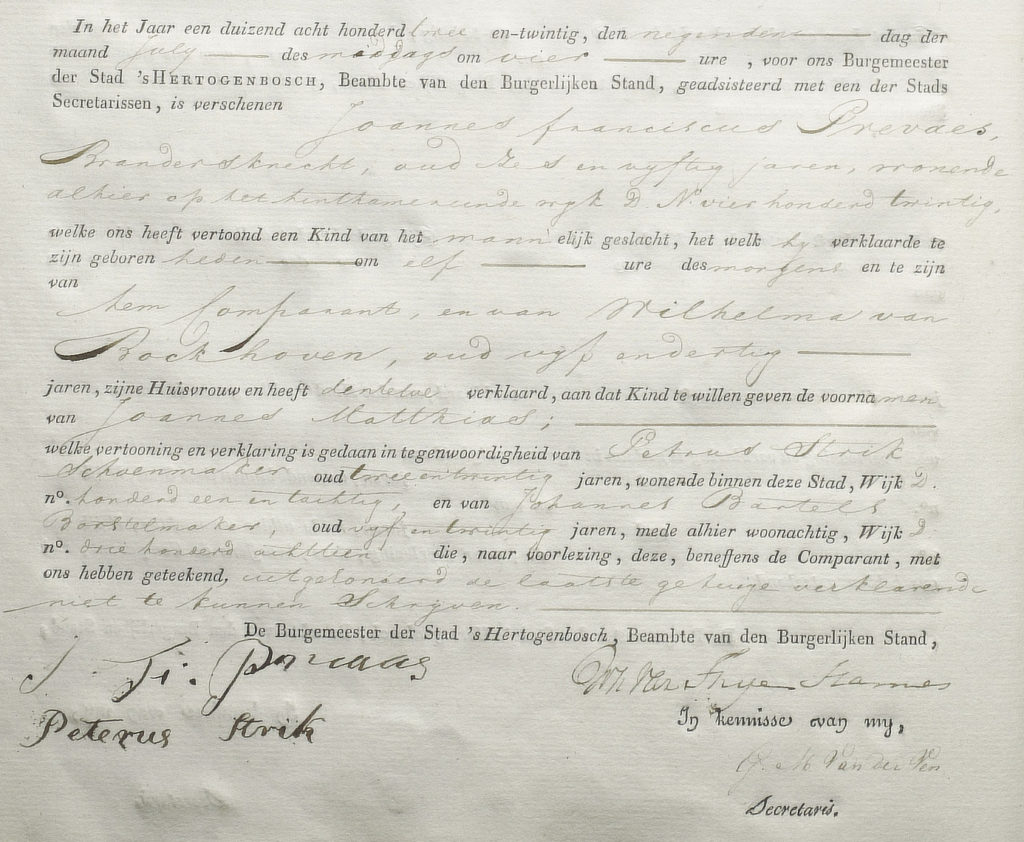 In het Jaar een duizend acht honderd twee en-twintig, den negenden dag der
maand July des middags om vier ure , voor ons Burgemeester
der Stad 'sHERTOGENBOSCH, Beambte van den Burgerlijken Stand, geadsisteerd met een der Stads
Secretarissen, is verschenen
Joannes franciscus Prevaes,
Brandersknecht, oud zes en vyftig jaren, wonende
alhier op het hinthamereunde wyk D. N. vier honderd twintig,
welke ons heeft vertoond een Kind van het mann elijk geslacht, het welk hy verklaarde te
zijn geboren heden om elf ure des morgens en te zijn
van
hem Comparant, en van Wilhelma van
Bockhoven, oud vyf endertig
jaren, zijne Huisvrouw en heeft denzelve verklaard, aan dat Kind te willen geven de voorna men
van Joannes Matthias;
welke vertooning en verklaring is gedaan in tegenwoordigheid van Petrus Strik
Schoenmaker oud twee entwintig jaren, wonende binnen deze Stad, Wijk D.
n°. honderd een en tachtig, en van Johannes Bartels
Borstelmaker, oud vyf en twintig jaren, mede alhier woonachtig, Wijk D
n°. drie honderd achttien die, naar voorlezing, deze, beneffens de Comparant, met
ons hebben geteekend, uitgezonderd de laatste getuige verklarende
niet te kunnen Schryven.
De Burgemeester der Stad 's Hertogenbosch, Beambte van den Burgerlijken Stand,
J
Peterus Strik
In kennisse van my,
Van der Ven
Secretaris.